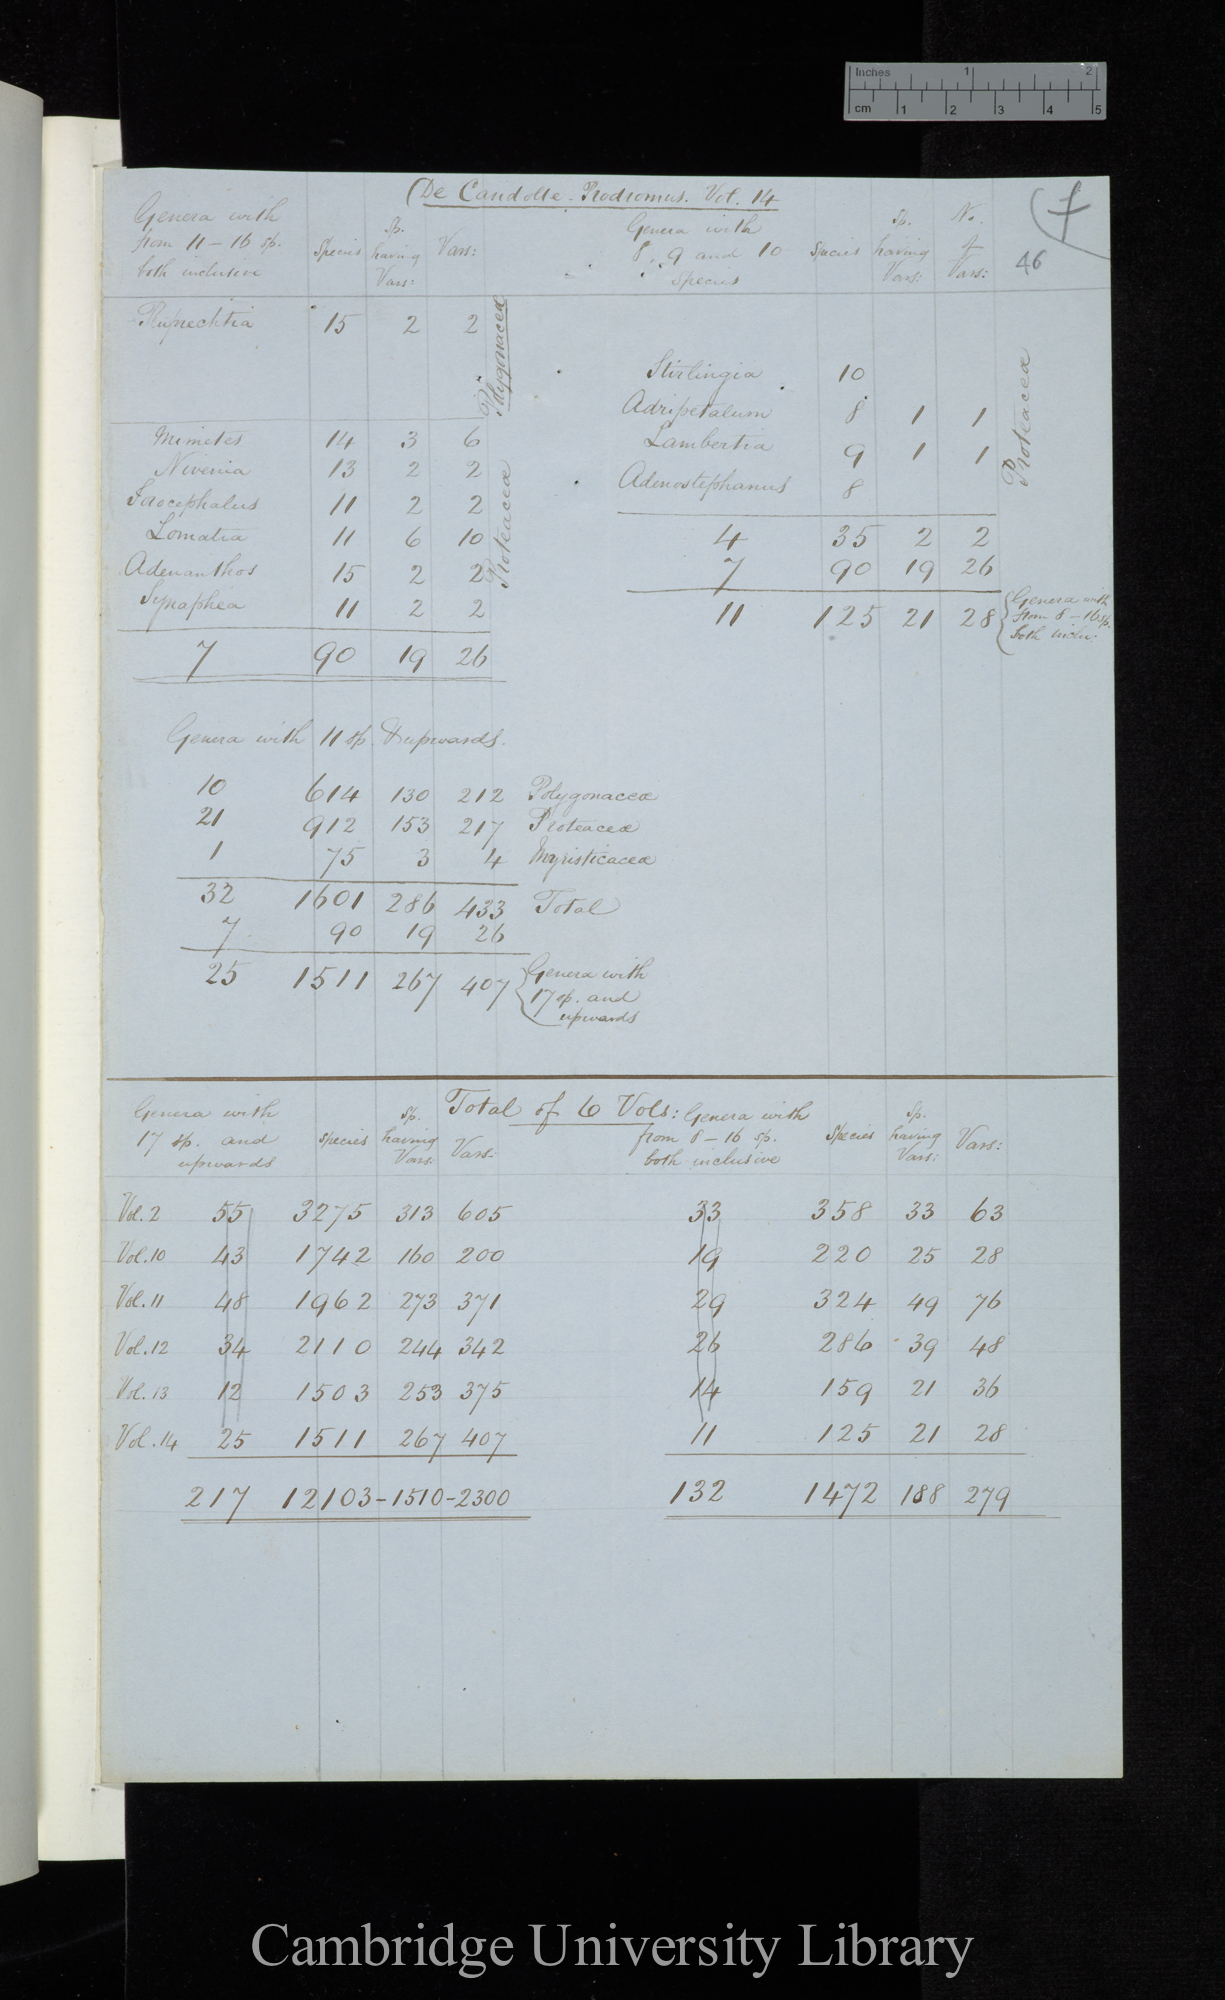 Inches 1 2
cm 1 2 3 4 5
(De Candolle. Prodromus. Vol. 14
7
46
Genera with
from 11 – 16 sp.
both inclusive
Species
sp. having Vars:
Vars:
Ruprechtia 15 2 2
Polygonaceæ
Mimetes 14 3 6
Nivenia 13 2 2
Sorocephalus 11 2 2
Lomatia 11 6 10
Adenanthos 15 2 2
Synaphea 11 2 2
Proteaceæ
7 90 19 26
Genera with
8, 9 and 10
Species
Species
sp. having Vars:
No. of Vars:
Stirlingia 10
Adripetalum 8 1 1
Lambertia 9 1 1
Adenostephanus 8
Proteaceæ
4 35 2 2
7 90 19 26
11 125 21 28
Genera with
from 8 – 16 sp.
both inclu:
Genera with 11 sp. & upwards.
10 614 130 212 Polygonaceæ
21 912 153 217 Proteaceæ
1 75 3 4 Myristicaceæ
32 1601 286 433 Total
7 90 19 26
25 1511 267 407 Genera with
17 sp. and
upwards
Total of 6 Vols:
Genera with
17 sp. and
upwards
Species
sp. having Vars:
Vars:
Genera with
from 8 – 16 sp.
both inclusive
Species
Sp. having Vars:
Vars:
Vol. 2 55 3275 313 605 33 358 33 63
Vol. 10 43 1742 160 200 19 220 25 28
Vol. 11 48 1962 273 371 29 324 49 76
Vol. 12 34 2110 244 342 26 286 39 48
Vol. 13 12 1503 253 375 14 159 21 36
Vol. 14 25 1511 267 407 11 125 21 28
217 12103–1510–2300 132 1472 188 279
Cambridge University Library